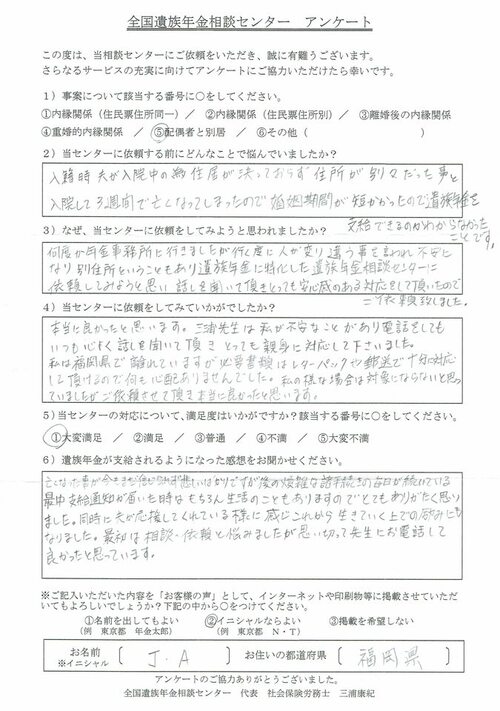 全国遺族年金相談センター　アンケート
この度は、当相談センターにご依頼をいただき、誠に有難うございます。
さらなるサービスの充実に向けてアンケートにご協力いただけたら幸いです。
1）事案について該当する番号に○をしてください。
①内縁関係（住民票住所同一）／　②内縁関係（住民票住所別）／　③離婚後の内縁関係
④重婚的内縁関係　／　⑤配偶者と別居　／　⑥その他（　　　　　　）
2）当センターに依頼する前にどんなことで悩んでいましたか？
入籍時夫が入院中の為住居が決っておらず住所が別々だった事と
入院して3週間で亡くなってしまったので婚姻期間が短かかったので遺族年金を
支給できるのかわからなかった
ことです。
3）なぜ、当センターに依頼をしてみようと思われましたか？
何度か年金事務所に行きましたが行く度に人が変り違う事を言われ不安に
なり別住所ということもあり遺族年金に特化した遺族年金相談センターに
依頼してみようと思い話しを聞いて頂きとっても安心感のある対応をして頂いたので
ご依頼致しました。
4）当センターに依頼をしてみていかがでしたか？
本当に良かったと思います。三浦先生は私が不安なことがあり電話をしても
いつも心よく話しを聞いて頂き とっても親身に対応して下さいました。
私は福岡県で離れていますが必要書類はレターパックや郵送で十分対応
して頂けるので何も心配ありませんでした。私の様な場合は対象にならないと思っ
ていましたがご依頼させて頂き本当に良かったと思います。
5）当センターの対応について、満足度はいかがですか？該当する番号に○をしてください。
①大変満足　／　②満足　／　③普通　／　④不満　／　⑤大変不満
6）遺族年金が支給されるようになった感想をお聞かせください。
亡くなった事が今もまだ信じられず悲しいばかりですが後の煩雑な諸手続きの毎日が続いている
最中支給通知が届いた時はもちろん生活のこともありますのでとてもありがたく思い
ました。同時に夫が応援してくれている様に感じこれから生きていく上での励みにも
なりました。最初は相談・依頼と悩みましたが思い切って先生にお電話して
良かったと思っています。
※ご記入いただいた内容を「お客様の声」として、インターネットや印刷物等に掲載させていただ
いてもよろしいでしょうか？下記の中から○をつけてください。
①名前を出してもよい　　②イニシャルならよい　　③掲載を希望しない
（例　東京都　年金太郎）　（例　東京都　N・T）
お名前　［　J．A　］　お住いの都道府県　［　福岡県　］
※イニシャル
アンケートのご協力ありがとうございました。
全国遺族年金相談センター　代表　社会保険労務士　三浦康紀